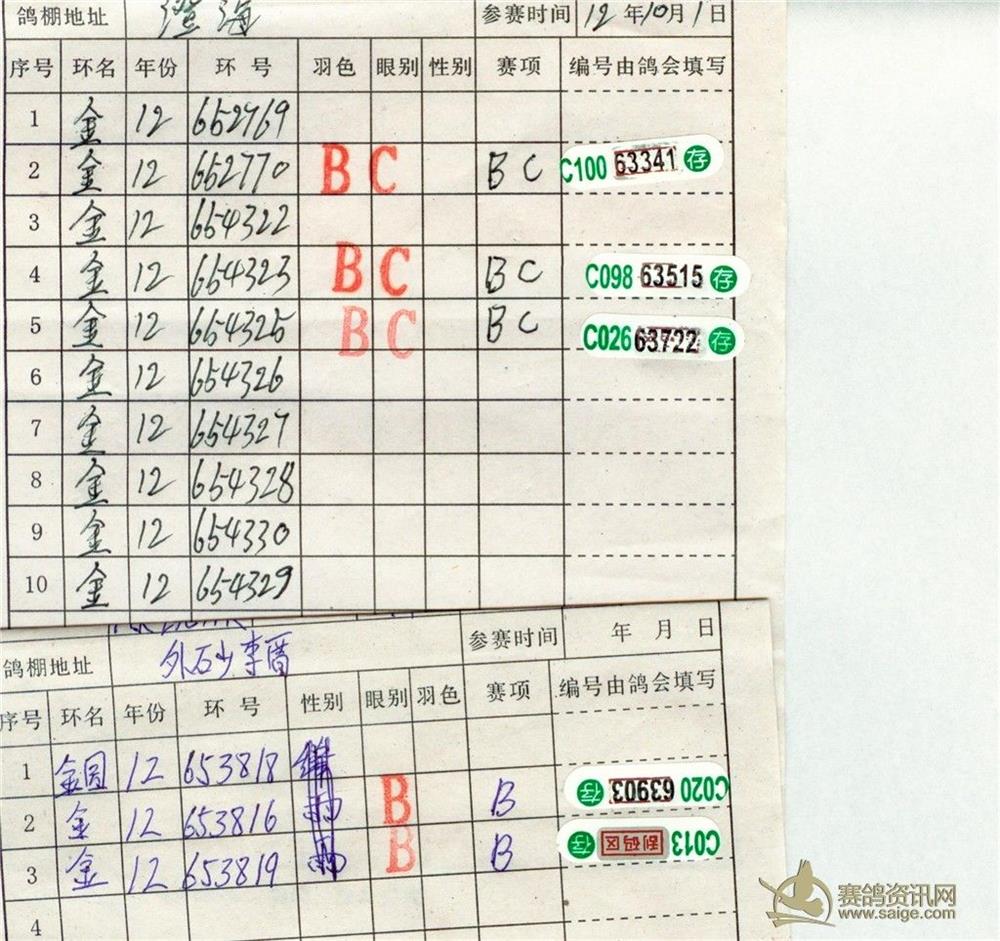 鸽棚地址 澄海 参赛时间 12年10月1日
序号 环名 年份 环号 羽色 眼别 性别 赛项 编号由鸽会填写
1 金 12 652769
2 金 12 652770 B C B C C100 63341 存
3 金 12 654322
4 金 12 654323 B C B C C098 63515 存
5 金 12 654325 B C B C C026 63722 存
6 金 12 654326
7 金 12 654327
8 金 12 654328
9 金 12 654330
10 金 12 654329
鸽棚地址 外石沙 参赛时间 年 月 日
序号 环名 年份 环号 性别 眼别 羽色 赛项 编号由鸽会填写
1 金圆 12 653818
2 金 12 653816 雨 B B C020 63903 存
3 金 12 653819 雨 B B C013 刮码区 存
4
赛鸽资讯网
www.saige.com